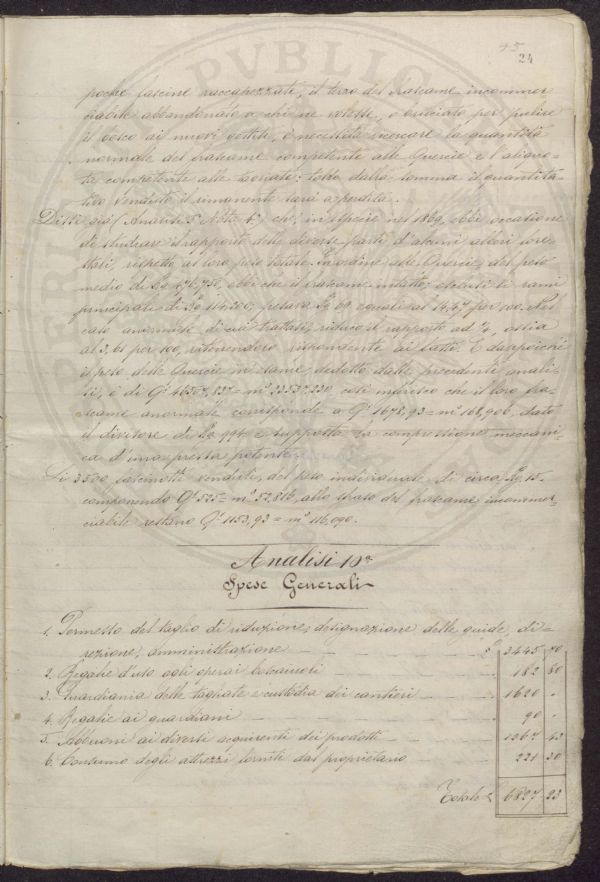 45
24
poche fascine raccapezzate, il terzo del frascame incommer
ciabile abbandonato a chi ne volesse, o bruciato per pulire
il bosco ai nuovi gettiti, è necessità ricercare la quantità
normale del frascame competente alle Quercie e l'aliquo-
ta competente alle soriate; tolto dalla somma il quantita-
tivo venduto il rimanente sarà a perdita.
Dissi già (Analisi 5ª Nota 4ª) che, in specie nel 1869, ebbi occasione
di studiare il rapporto delle diverse parti d'alcuni alberi fore-
stali, rispetto al loro peso totale. In ordine alle Quercie, del peso
medio di 476,750, ebbi che il frascame intatto, esclusi i rami
principali di 114,200, pesava 69 eguali al 14,47 per 100. Nel
caso anormale di cui trattasi, riduco il rapporto ad ¼, ossia
al 3,61 per 100, ritenendolo rispondente ai fatti. E dappoichè
il peso delle Quercie in esame, dedotto dalle precedenti anali-
si, è di Qⁱ 46507,837 = mᶜ 23537,230 così inferisco che il loro fra-
scame anormale corrisponde a Qⁱ 1678,93 = mᶜ 168,906, dato
il divisore di 994 e supposta la compressione meccani-
ca d'una pressa potente.
Li 3500 fascinotti venduti, del peso individuale di circa 15
componendo Qⁱ 525 = mᶜ 52,816, allo strato del frascame incommer-
ciabile restano Qⁱ 1153,93 = mᶜ 116,090.
Analisi 10ª
Spese Generali
1. Permesso del taglio di riduzione, designazione delle guide, di-
rezione, amministrazione £ 3445 70
2. Regalie d'uso agli operai boscaiuoli 182 60
3. Guardiania delle tagliate e custodia dei cantieri 1620 -
4. Regalie ai guardiani 90 -
5. Abbuoni ai diversi acquirenti dei prodotti 1267 43
6. Consumo degli attrezzi forniti dal proprietario 221 50
Totale £ 6827 23